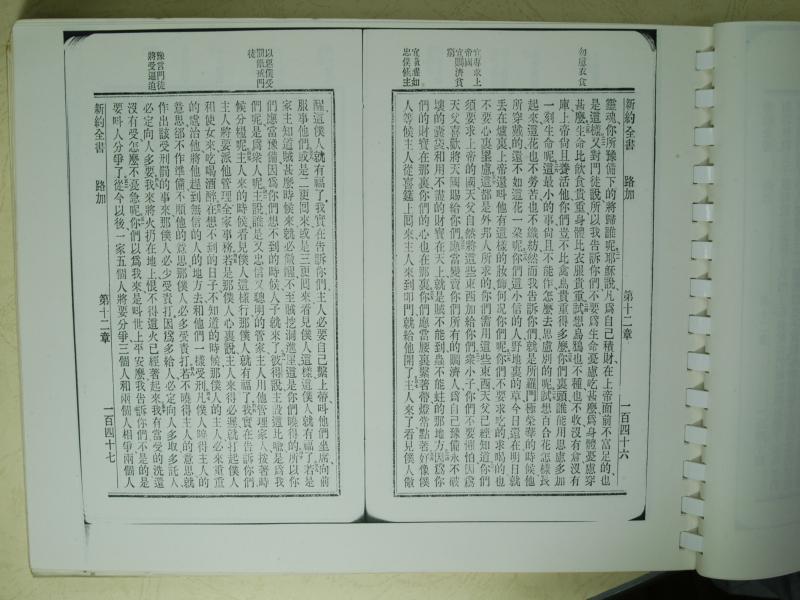 勿慮衣食
宜尋求上帝國
宜賙濟貧窮
宜儆醒如忠僕候主
新約全書 路加 第十二章 一百四十六
靈魂、你所豫備下的將歸誰呢、耶穌說、凡爲自己積財、在上帝面前不富足的、也
是這樣、又對門徒說、所以我告訴你們、不要爲生命憂慮吃甚麼、爲身體憂慮穿
甚麼、生命比飲食貴重、身體比衣服貴重、試想烏鴉、也不種也不收、沒有倉沒有
庫、上帝尙且養活他、你們豈不比禽鳥貴重得多麼、你們裏頭、誰能用思慮多加
一刻生命呢、這最小的事、尙且不能作、怎麼去思慮別的呢、試想百合花怎樣長
起來、這花也不勞苦、也不織紡、然而我告訴你們、就是所羅門極榮華的時候、他
所穿戴的、還不如這花一朵呢、你們這小信的人、野地裏的草、今日還在、明日就
丟在爐裏、上帝還叫他有這樣的妝飾、何況你們呢、你們不要求吃的求喝的、也
不要心裏罣慮、這都是外邦人所求的、你們需用這些東西、天父已經知道、你們
須要求上帝的國、天父自然將這些東西加給你們、衆小子你們不要懼怕、因爲
天父喜歡將天國賜給你們、你們應當變賣你們所有的賙濟人、爲自己豫備永不破
壞的囊袋、和用不盡的財寶在天上、就是賊不能到、蟲不能蛀的那地方、因爲你
們的財寶在那裏、你們的心也在那裏、你們應當腰裏緊著帶、燈當點著、好像僕
人等候主人、從喜筵上回來、主人來了叩門、就給他開了、主人來了、看見僕人儆
以忠僕受賞惡僕受罰訓戒門徒
豫言門徒將受逼迫
醒、這僕人就有福了、我實在告訴你們、主人必要自己繫上帶、叫他們坐席、向前
服事他們、或是二更回來、或是三更回來、看見僕人這樣、這僕人就有福了、若是
家主知道賊甚麼時候來、就必儆醒、不至賊挖洞進屋、這是你們曉得的、所以你
們應當豫備、因爲你們想不到的時候、人子就來了、彼得說、主設這比喻、是爲我
們呢、是爲衆人呢、主說、誰是又忠信又聰明的管家、主人用他管理家人、按著時
候分糧呢、主人來的時候、看見僕人這樣行、那僕人就有福了、我實在告訴你們、
主人將要派他管理全家事務、若是那僕人心裏說、主人來得必遲、就打起僕人
和使女來、吃喝酒醉、在想不到的日子、不知道的時候、那僕人的主人必來、重重
的處治他、將他趕到無信的人的地方去、和他們一樣受刑、凡僕人曉得主人的
意思、卻不作準備、不順他的意思、那僕人必多受責打、若不曉得主人的意思、就
作出該受刑罰的事來、那僕人必少受責打、因爲多給人必定向人多取、多託人
必定向人多要、我來將火扔在地上、恨不得這火已經著起來、我有當受的洗還
沒有受、怎麼不憂急呢、你們以爲我來是叫世上平安麼、我告訴你們、不是的、是
要叫人分爭了、從今以後、一家五個人將要分爭、三個人和兩個人相爭、兩個人
新約全書 路加 第十二章 一百四十七